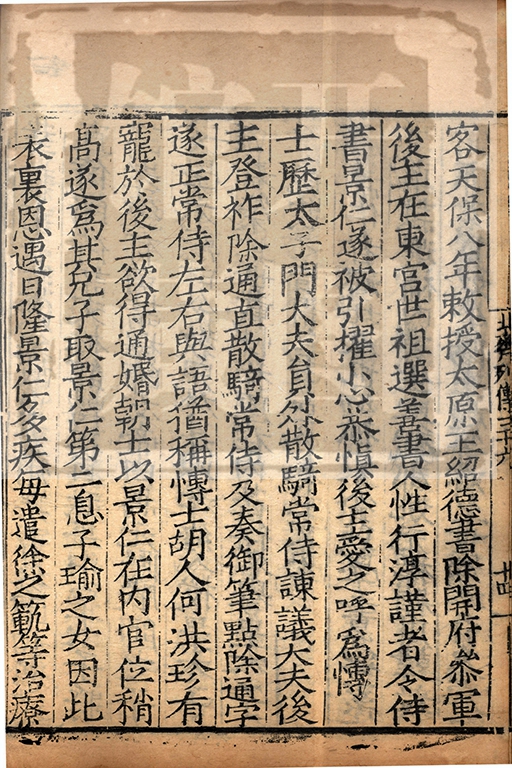 客天保八年敕授太原王紹德書除開府叅軍
後主在東宮世祖選善書人性行淳謹者令侍
書景仁遂被引擢小心恭慎後主愛之呼為愽
士歷太子門大夫貟外散騎常侍諫議大夫後
主登祚除通直散騎常侍及奏御筆點除通字
遂正常侍左右與語猶稱愽士胡人何洪珍有
寵於後主欲得通婚朝士以景仁在內官位稍
髙遂爲其兄子取景仁第二息子瑜之女因此
表裏恩遇日隆景仁多疾每遣徐之範等治療